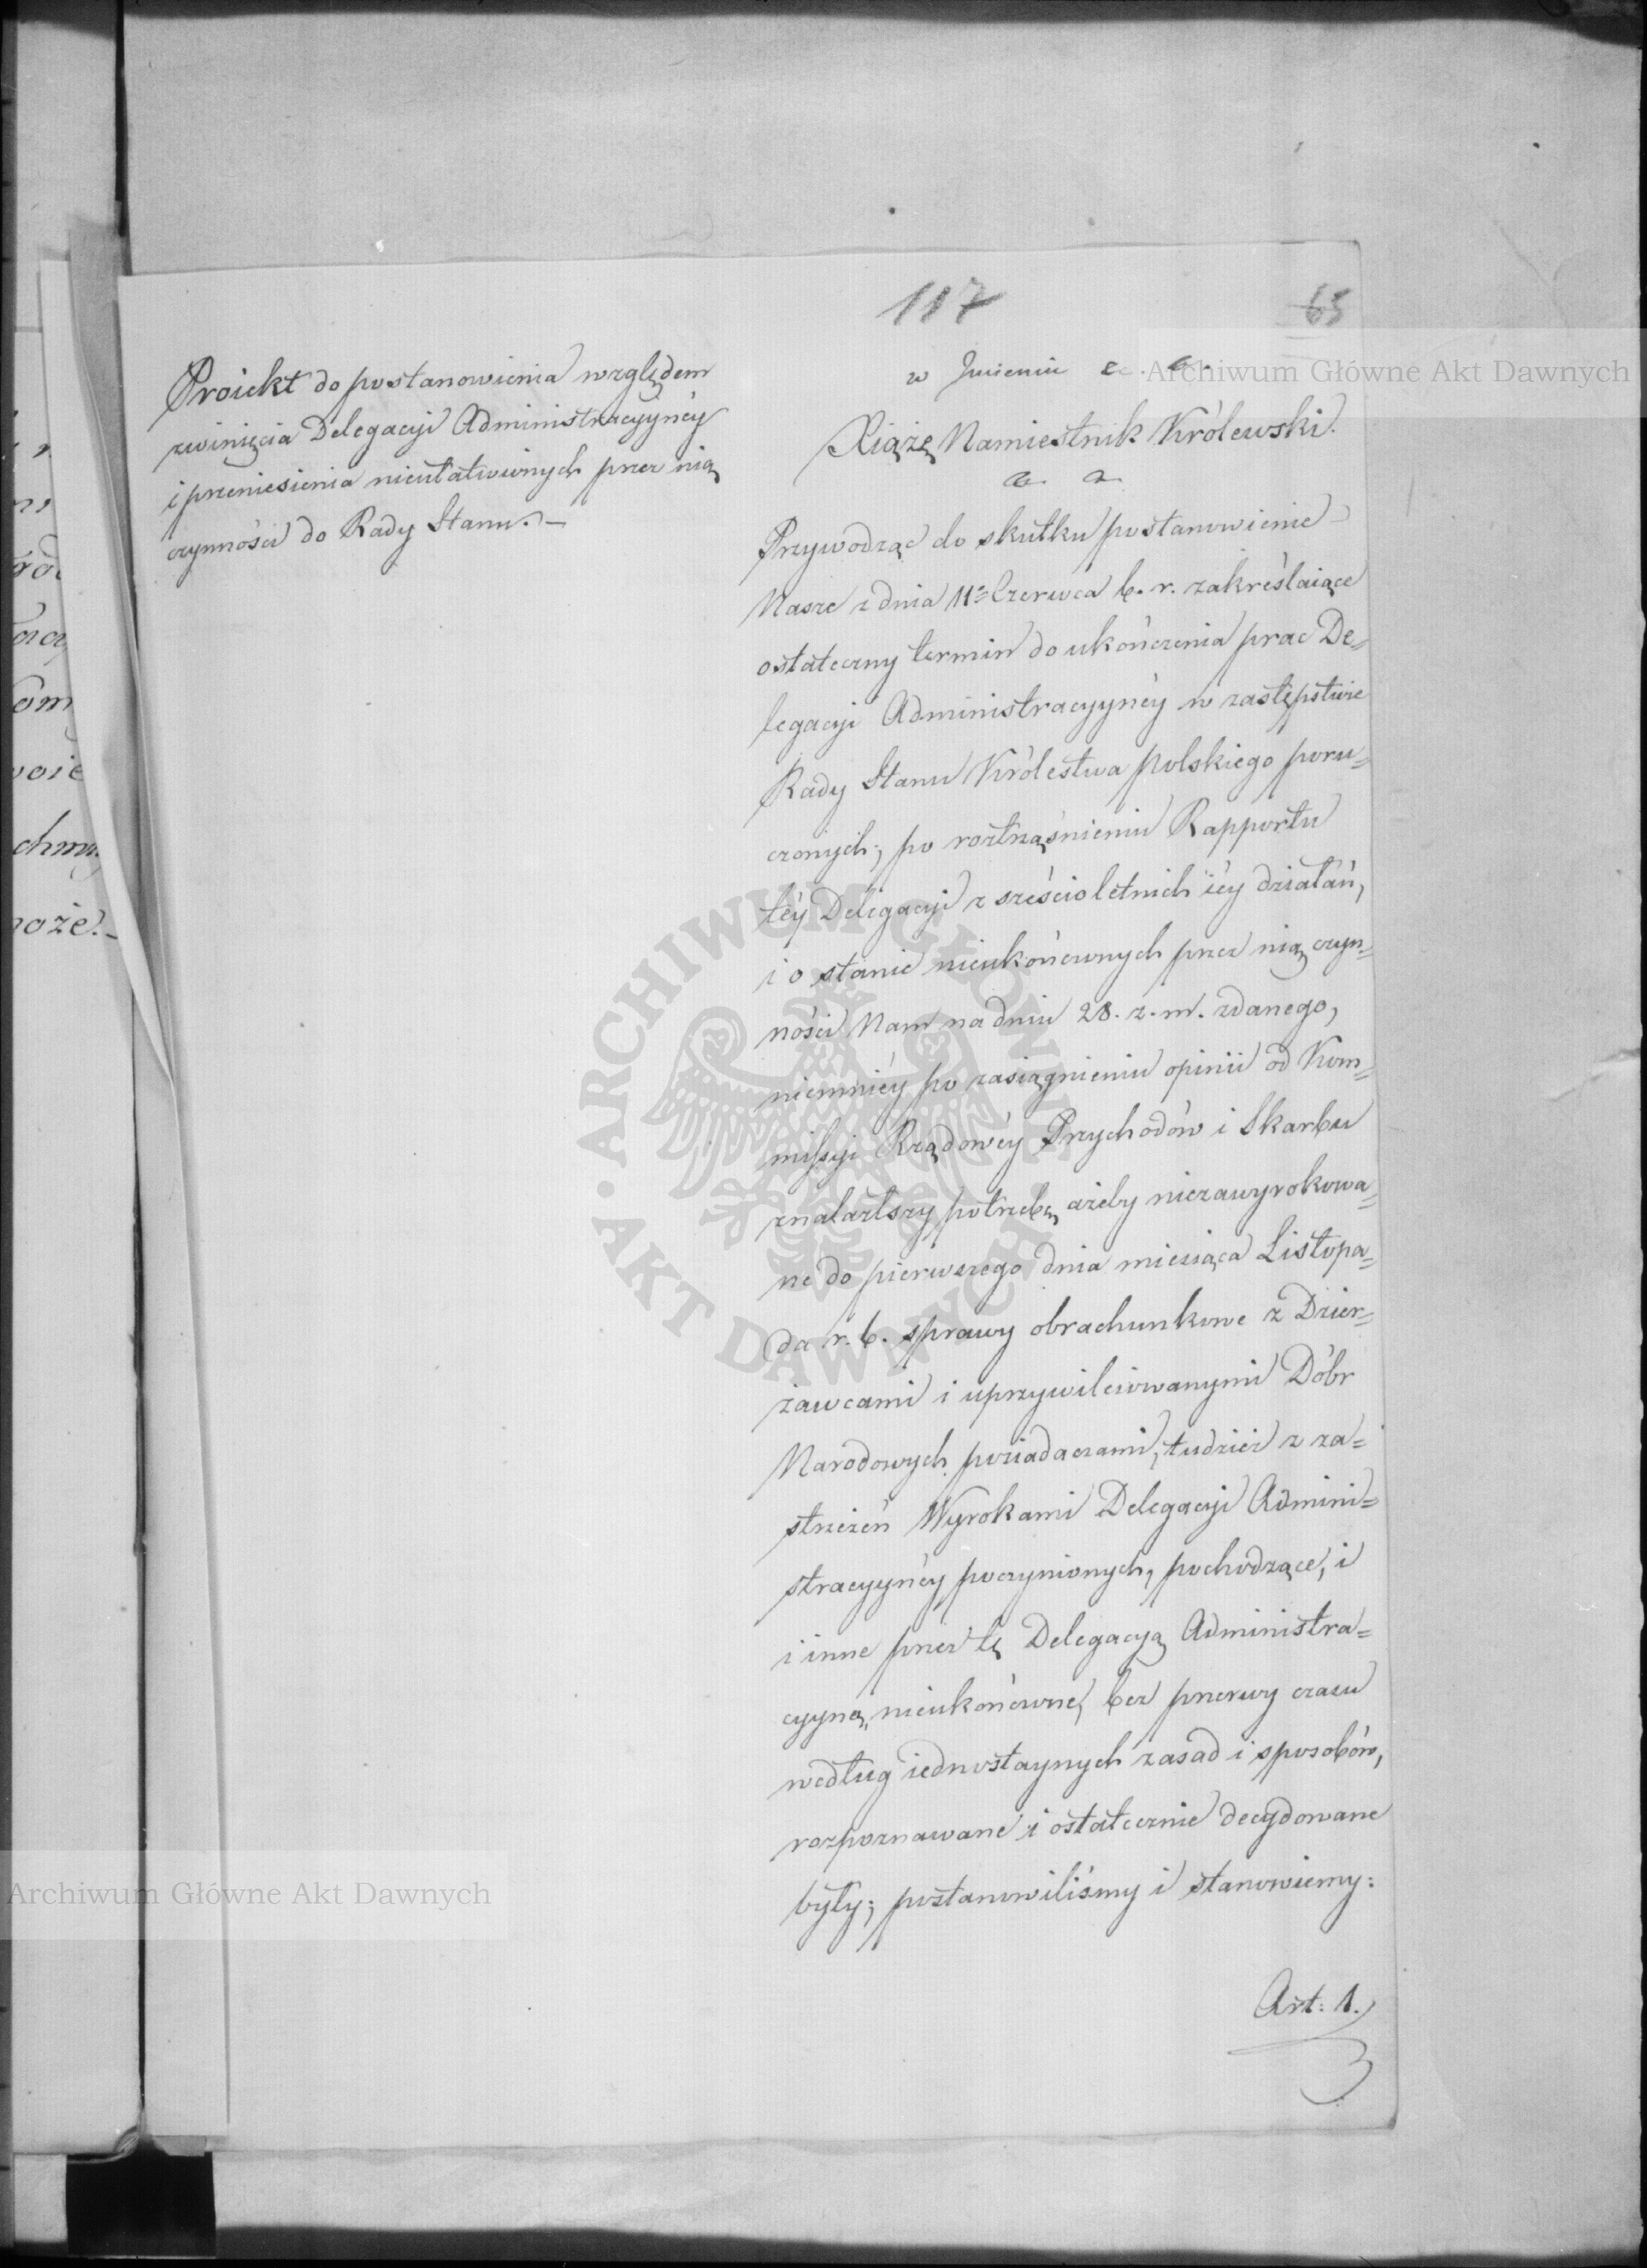 117
65
Proiekt do postanowienia względem
zwinięcia Delegacyi Administracyynéy
i przeniesienia nieułatwionych przez nią
czynności do Rady Stanu. –
w Jmieniu &. &.
Xiążę Namiestnik Królewski.
&. &.
Przywodząc do skutku postanowienie
Nasze z dnia 11º Czerwca b. r. zakréślaiące
ostateczny termin do ukończenia prac De=
legacyi Administracyynéy w zastępstwie
Rady Stanu Królestwa Polskiego poru=
czonych; po roztrząśnieniu Rapportu
téy Delegacyi z sześcioletnich iéy działań,
i o stanie nieukończonych przez nią czyn=
ności Nam na dniu 28. z. m. zdanego,
niemniéy po zasiągnieniu opinii od Kom=
missyi Rządowéy Przychodów i Skarbu
znalazłszy potrzebę ażeby niezawyrokowa=
ne do pierwszego dnia miesiąca Listopa=
da r. b. sprawy obrachunkowe z Dzier=
żawcami i uprzywileiowanymi Dóbr
Narodowych posiadaczami, tudzież z za=
strzeżeń Wyrokami Delegacyi Admini=
stracyynéy poczynionych, pochodzące, i
i inne przez tę Delegacyą Administra=
cyyną, nieukończone, bez przerwy czasu
według iednostaynych zasad i sposobów,
rozpoznawane i ostatecznie decydowane
były; postanowiliśmy i stanowiemy:
Art: 1.
chmy
może. –
Archiwum Główne Akt Dawnych
Archiwum Główne Akt Dawnych
· ARCHIWUM GŁÓWNE · AKT DAWNYCH